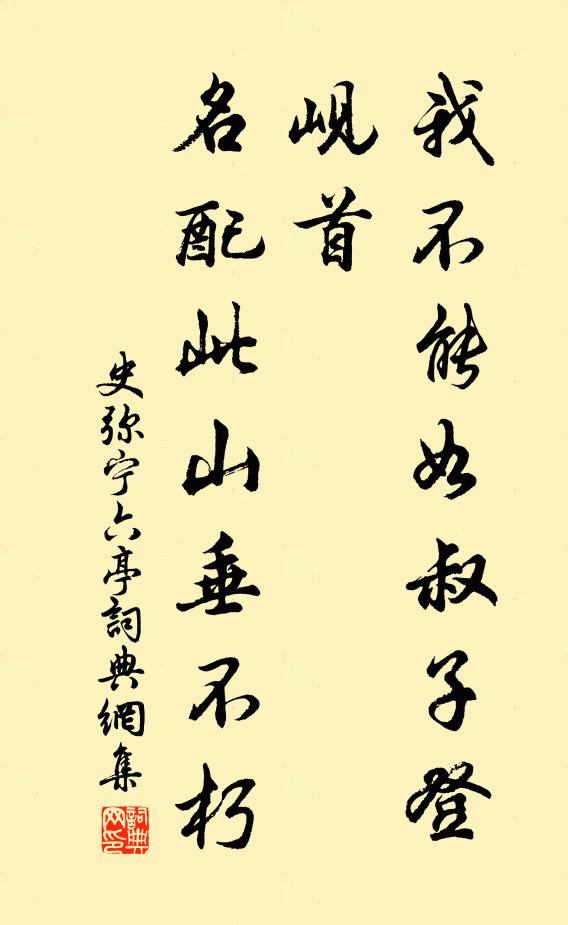 我不能如叔子登
岘首
名配此山垂不朽
史弥宁六亭詞典網集
詞典网印